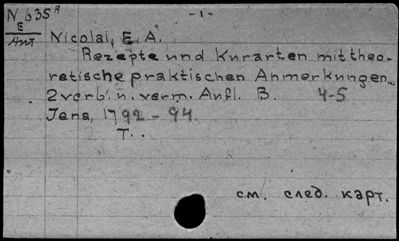 N 635 A
- 1 -
E
Ант
Nicolai, E. A.
Rezepte und Kurarten mit theo-
retische praktischen Anmerkungen...
2 verb. u. verm. Aufl. B. 4-5
Jena, 1792 - 94.
T. .
см. след. карт.